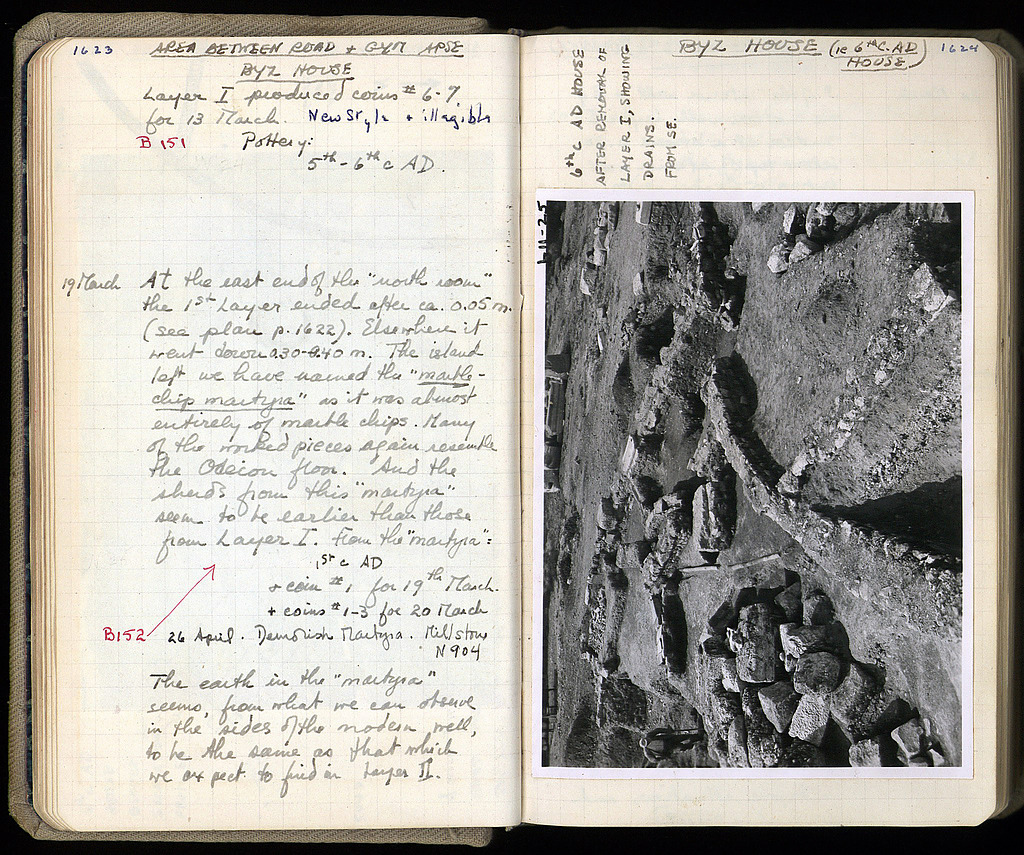 1623
AREA BETWEEN ROAD + GYM APSE
BYZ HOUSE
Layer I produced coins # 6-7
for 13 March. New Style + illegible
B 151 Pottery:
5th - 6th c AD.
19 March At the east end of the "north room"
the 1st Layer ended after ca. 0.05 m.
(see plan p. 1622). Elsewhere it
went down 0.30-0.40 m. The island
left we have named the "marble-
chip martyra" as it was almost
entirely of marble chips. Many
of the worked pieces again resemble
the Odeion floor. And the
sherds from this "martyra"
seem to be earlier than those
from Layer I. From the "martyra":
1st c AD
+ coin #1 for 19th March.
+ coins #1-3 for 20 March
B152 26 April. Demolish Martyra. Millstone
N 904
The earth in the "martyra"
seems, from what we can observe
in the sides of the modern well,
to be the same as that which
we expect to find in Layer II.
BYZ HOUSE (ie 6th C. AD
HOUSE)
1624
6th c AD HOUSE
AFTER REMOVAL OF
LAYER I, SHOWING
DRAINS.
FROM SE.